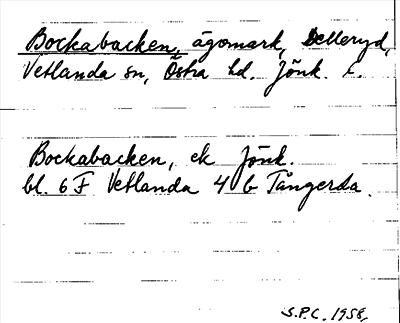 Bockabacken, ägomark, Delleryd,
Vetlanda sn, Östra hd. Jönk. l.
Bockabacken, ek Jönk.
bl. 6 F Vetlanda 4 b Tångerda.
S.P.C. 1958.